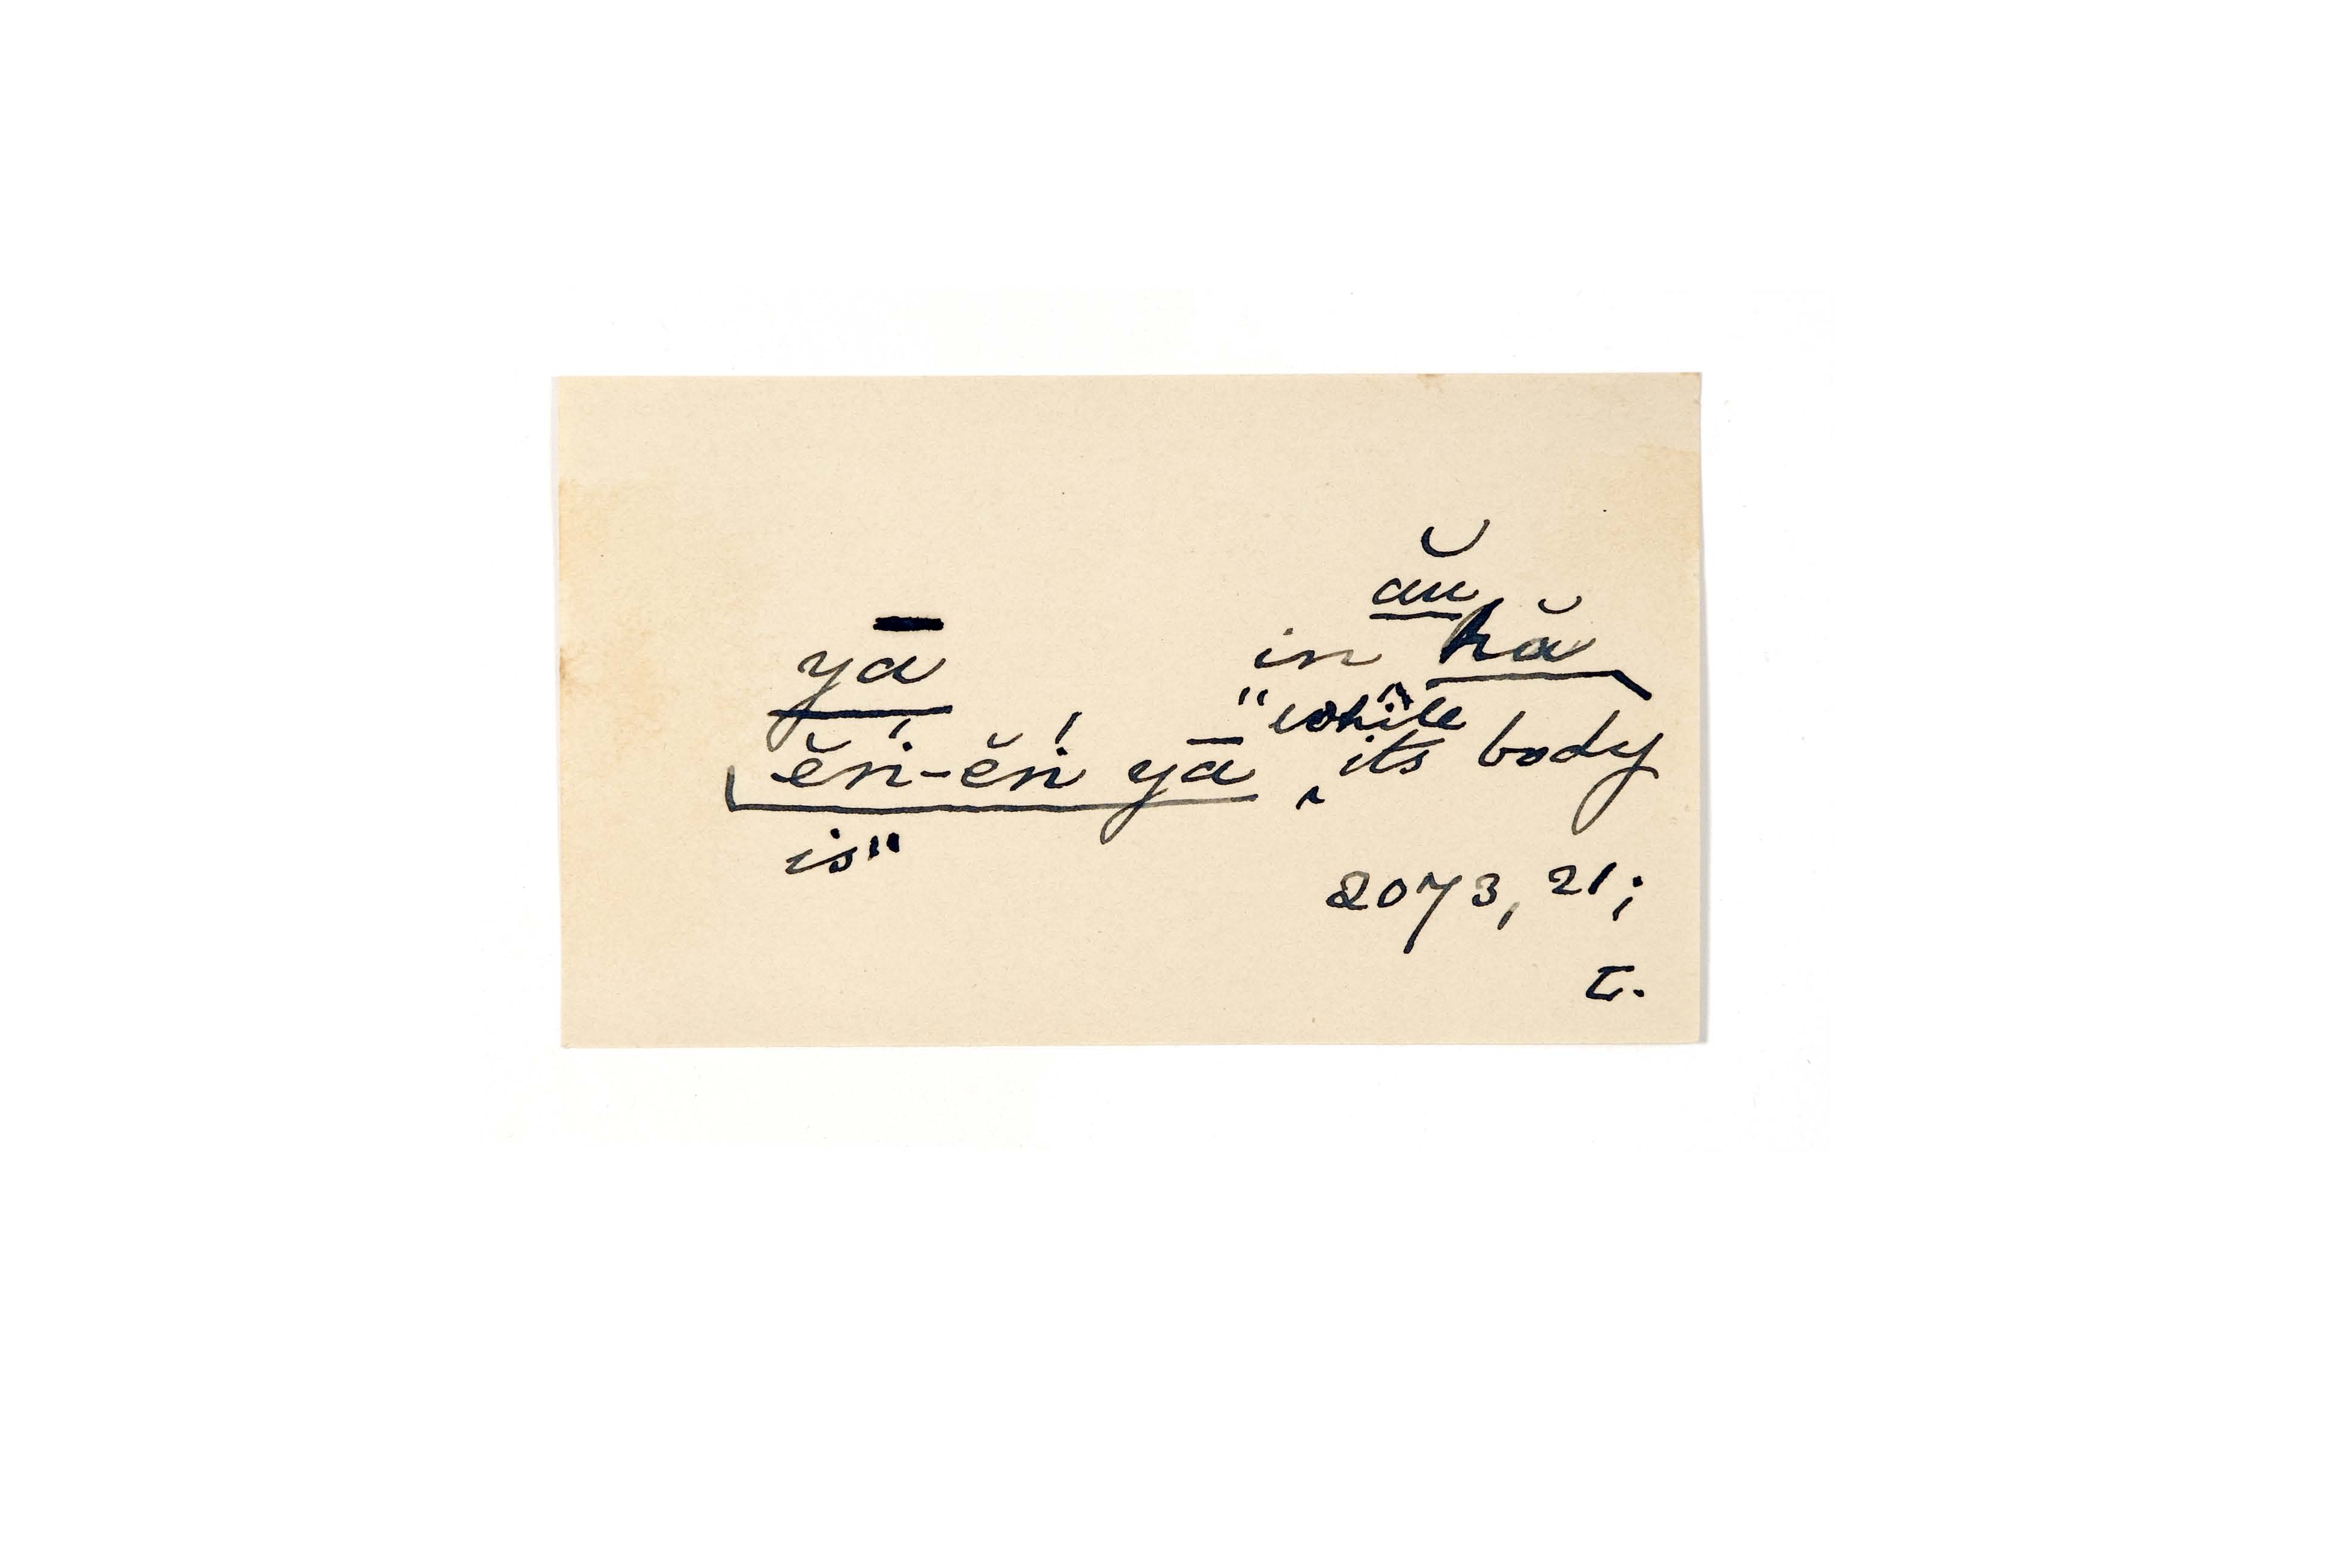 ău
yā in hă
"while
ĕṅ-ĕṅ yā its body
is"
2073, 21;
τ.